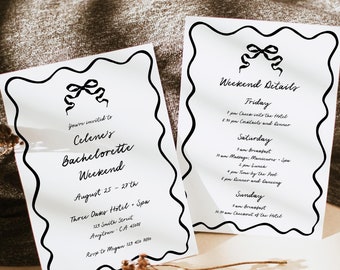 you're invited to
Celene's
Bachelorette
Weekend
August 25 - 27th
Three Oaks Hotel + Spa
123 Smith Street
Anytown, CA 43215
Rsvp to Megan
Weekend Details
Friday
5 pm Check into the Hotel
8:30 pm Cocktails and Dinner
Saturday
9 am Breakfast
10 am Massage, Manicures + Spa
2 pm Lunch
4 pm Time by the Pool
7 pm Dinner and Dancing
Sunday
9 am Breakfast
11:30 am Checkout of the Hotel